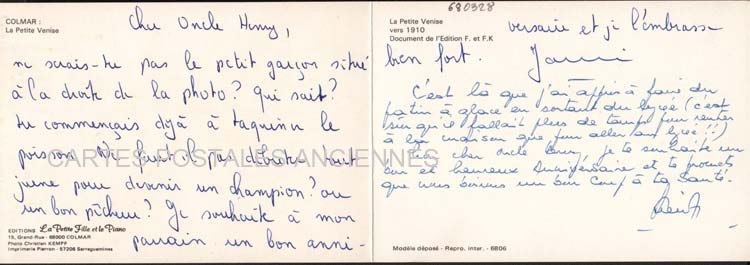 COLMAR :
La Petite Venise
Cher Oncle Henry,
ne serais-tu pas le petit garçon situé
à la droite de la photo? Qui sait?
tu commençais déjà à taquiner le
poisson. Ne faut-il pas débuter tout
jeune pour devenir un champion? ou
un bon pêcheur? Je souhaite à mon
parrain un bon anni-
CARTES POSTALES ANCIENNES
EDITIONS La Petite Fille et le Piano
15, Grand-Rue - 68000 COLMAR
Photo Christian KEMPF
Imprimerie Pierron - 57206 Sarreguemines
680328
La Petite Venise
vers 1910
Document de l'Edition F. et F.K
versaire et je l'embrasse
bien fort.
C'est là que j'ai appris à faire du
patin à glace en sortant du lycée (c'est
sûr qu'il fallait plus de temps pour rentrer
à la maison que pour aller au lycée !!)
cher oncle je te souhaite un
bon et heureux anniversaire et te promets
que nous boirons un bon coup à ta santé.
Modèle déposé - Repro. inter. - 6806